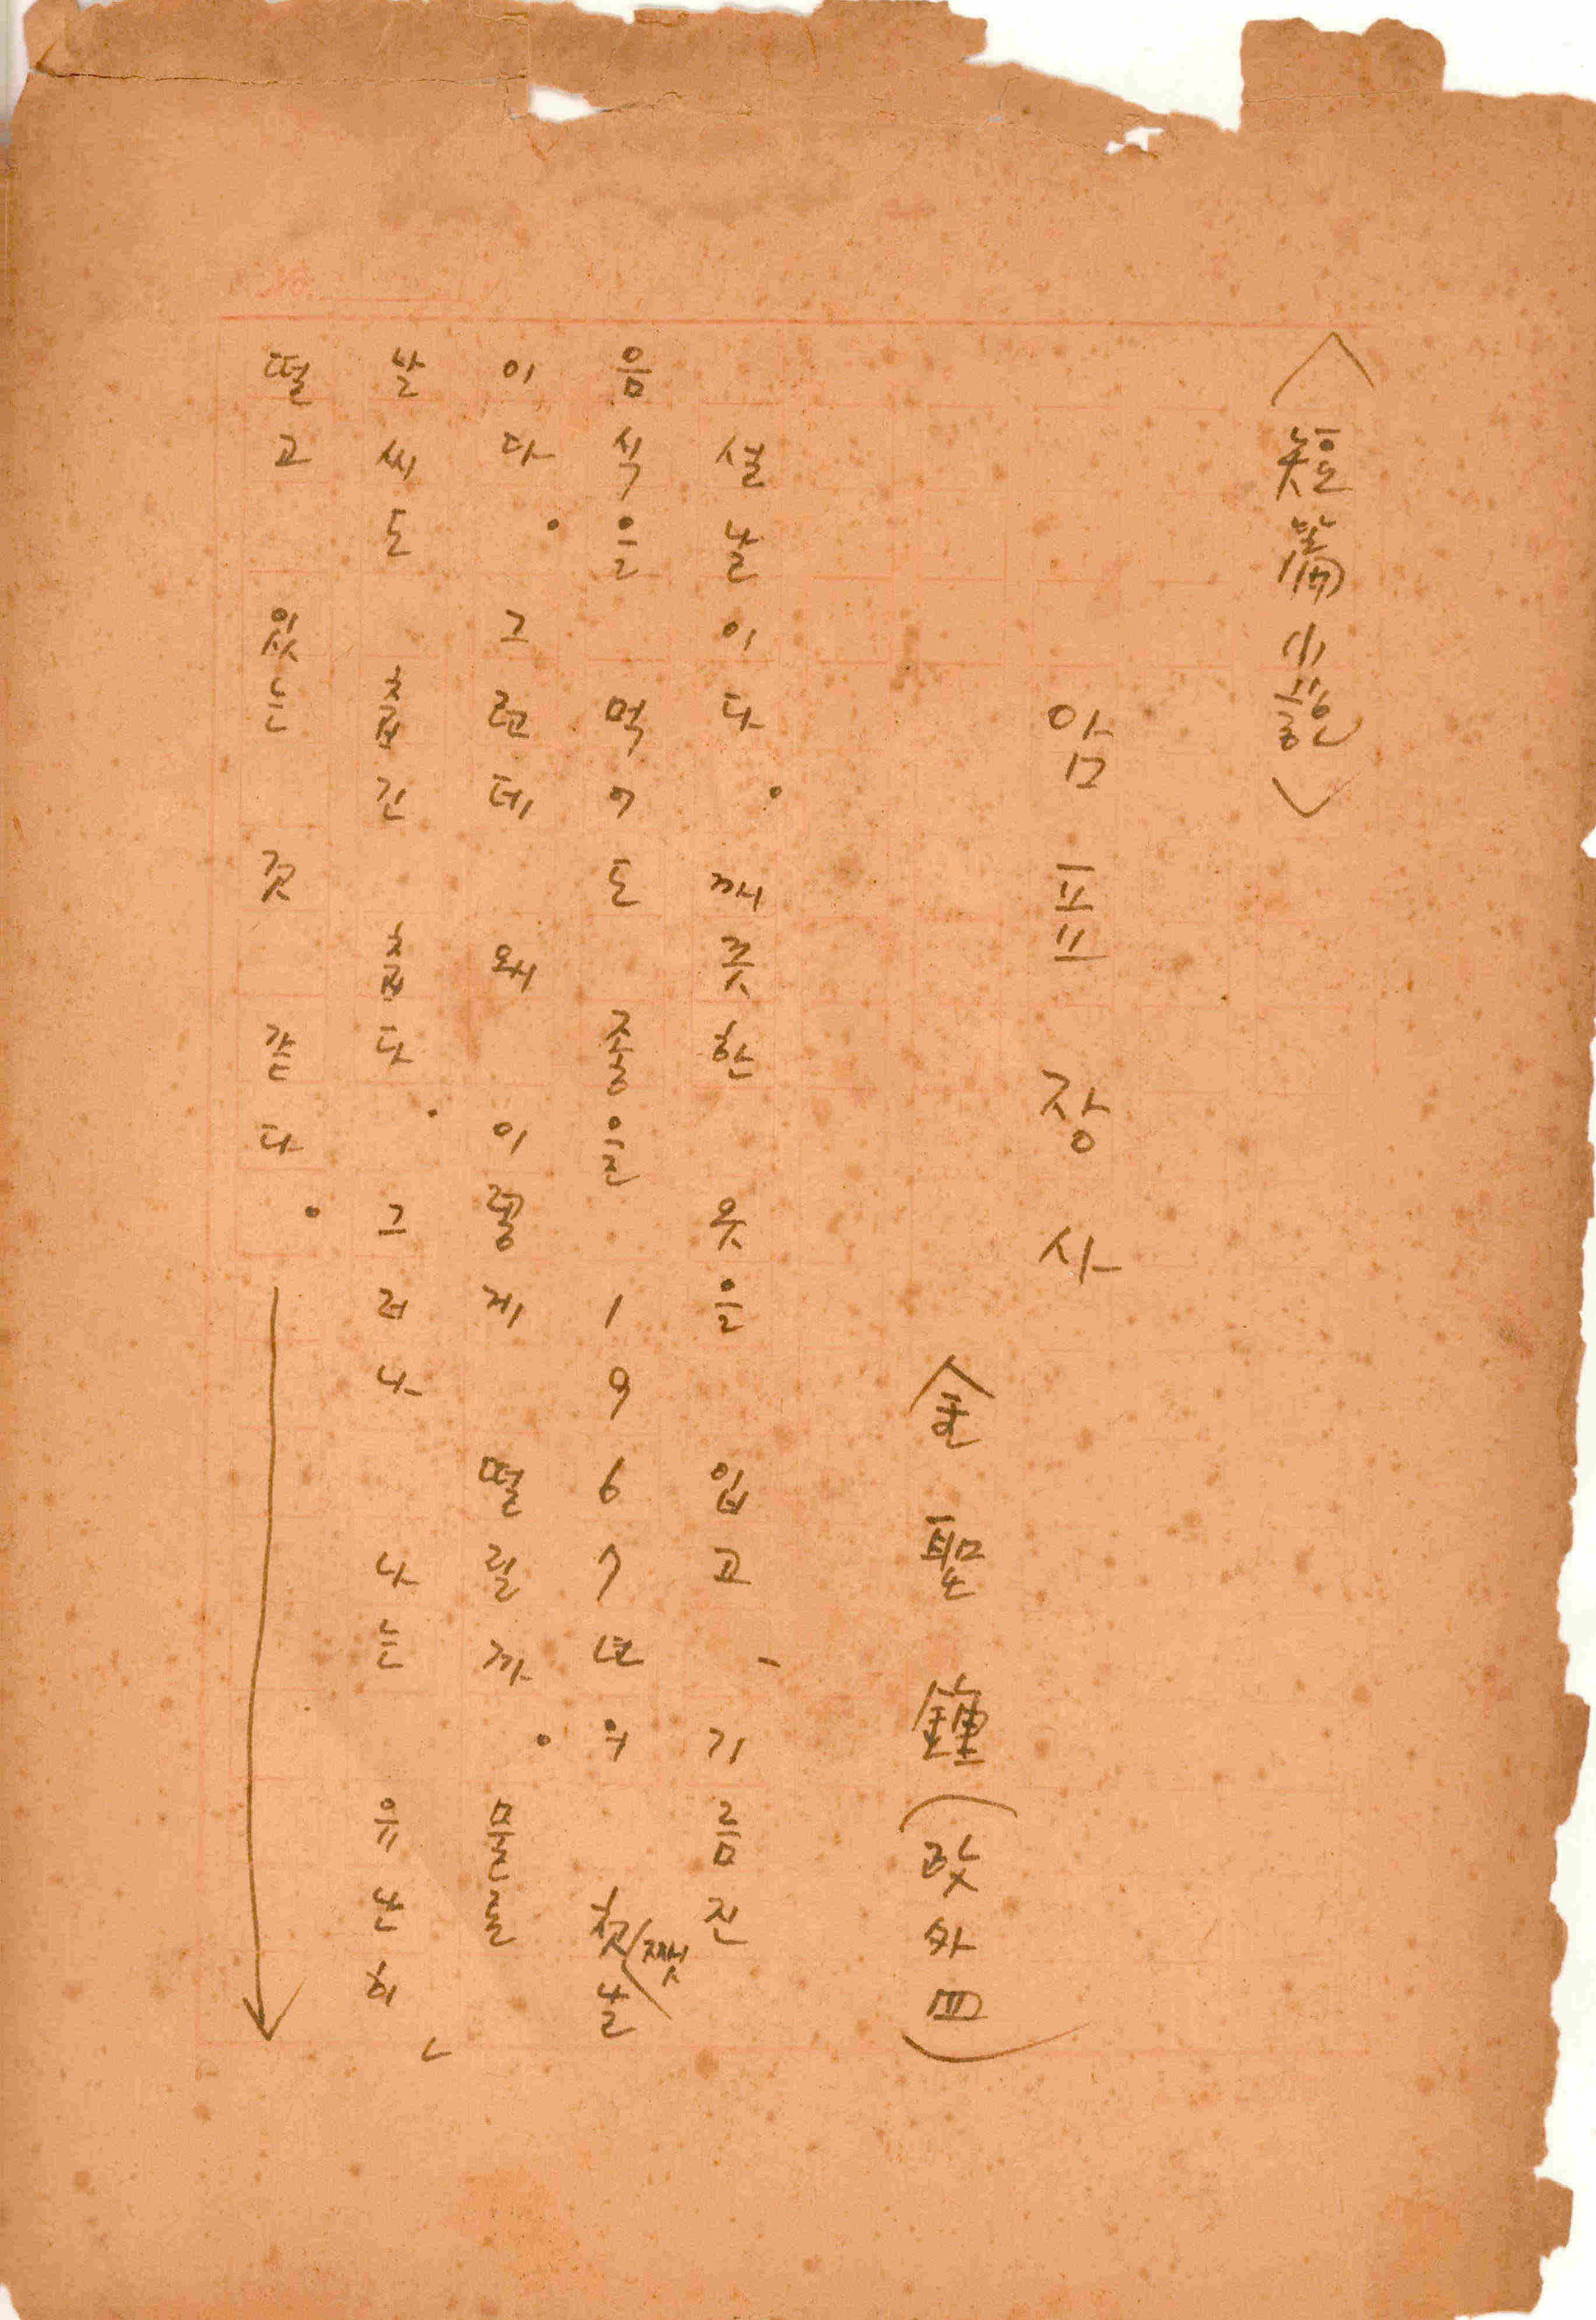 〈短篇小說〉
암표 장사
金聖鍾(政外四)
설날이다. 깨끗한 옷을 입고, 기름진
음식을 먹어도 좋을 1967년의 첫쨋날
이다. 그런데 왜 이렇게 떨릴까. 물론
날씨도 춥긴 춥다. 그러나 나는 유난히
떨고 있는 것 같다.